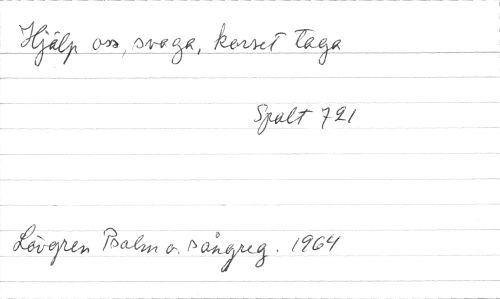 Hjälp oss, svaga, korset taga
Spalt 721
Lövgren Psalm o. sångreg. 1964